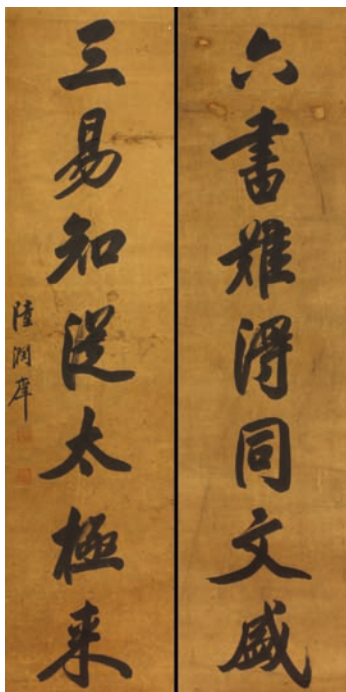 六書難得同文盛
三易知從太極来
陸潤庠